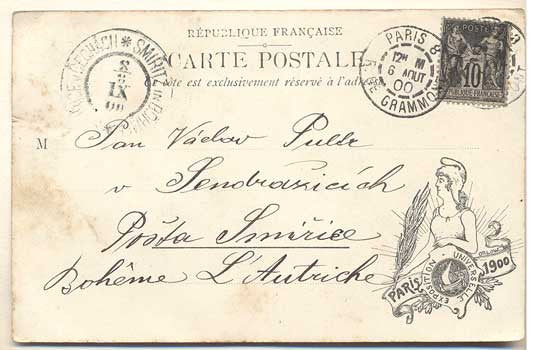 RÉPUBLIQUE FRANÇAISE
CARTE POSTALE
Ce côté est exclusivement réservé à l'adresse
PARIS 8
12H M
6 AOUT
00
R. DE GRAMMONT
POSTES
10
RÉPUBLIQUE FRANÇAISE
SMIŘITZ IN BÖHMEN
8
IX
00
M
Pan Václav Pultr
v Sendražicích
Pošta Smiřice
Bohême L'Autriche
PARIS 1900
EXPOSITION UNIVERSELLE